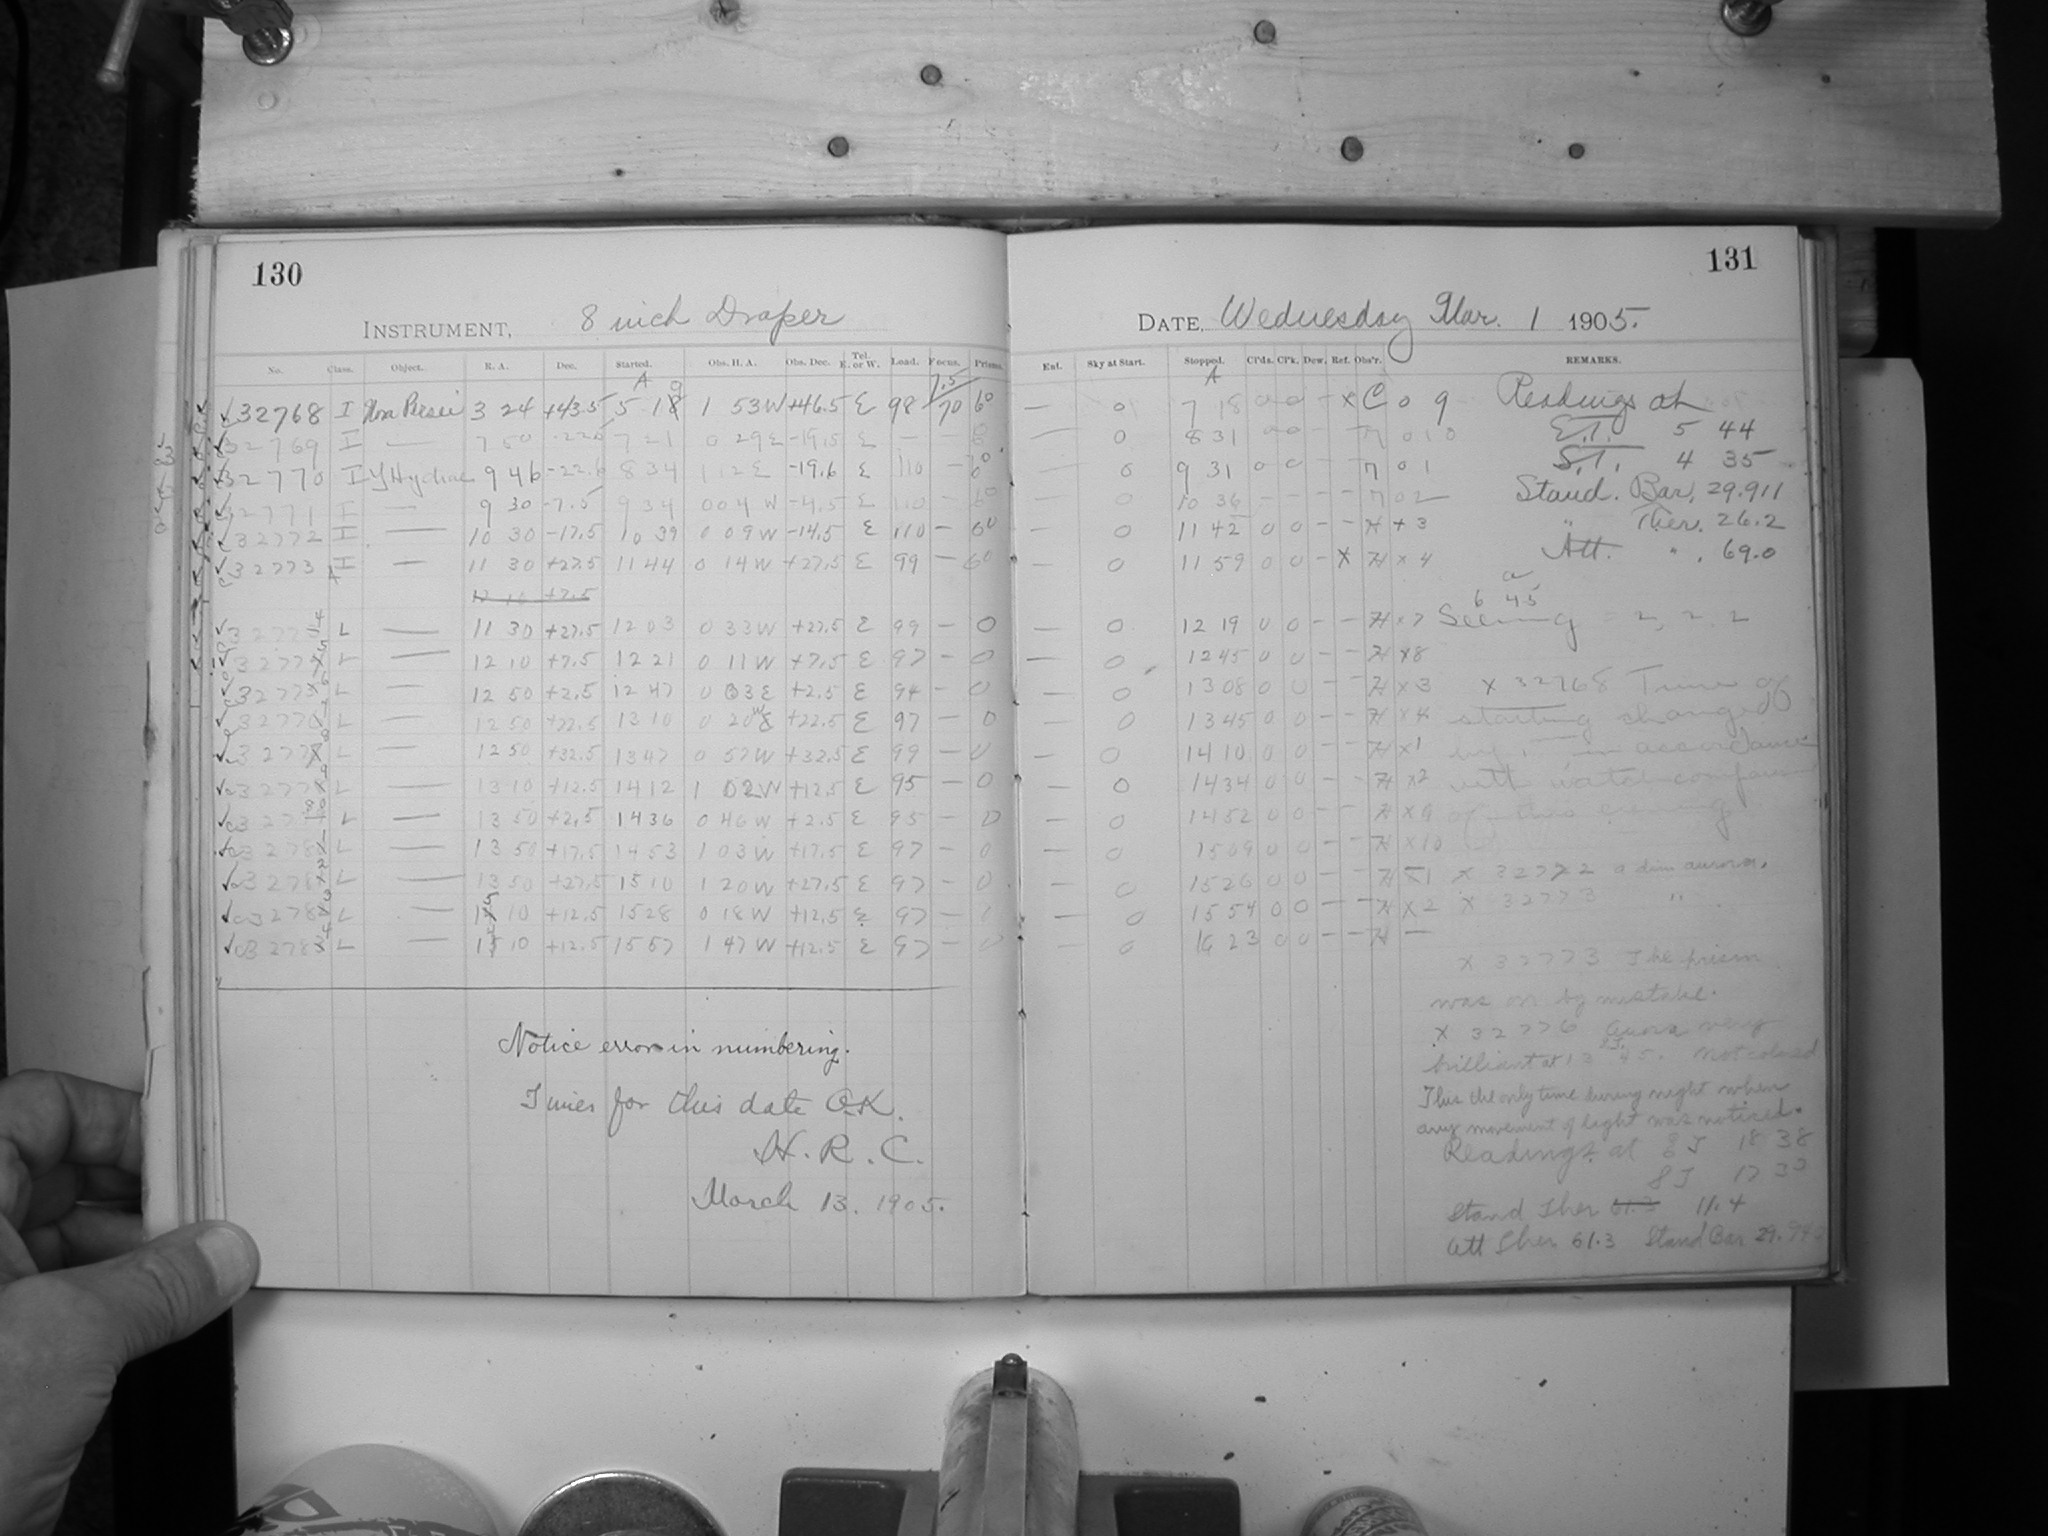 130
INSTRUMENT, 8 inch Draper
No. Class. Object. R. A. Dec. Started. Obs. H. A. Obs. Dec. Tel. E. or W. Load. Focus. Prisms.
32768 I Nova Persei 3 24 +43.5 5 18 1 53 W +46.5 E 98 70 60
32769 I — 7 50 7 21 0 29 E -19.5 E — —
32770 I Y Hydrae 9 46 -22.6 8 34 1 12 E -19.6 E 110 —
32771 I — 9 30 -7.5 9 34 0 04 W -4.5 E 110 — 60
32772 I — 10 30 -17.5 10 39 0 09 W -14.5 E 110 — 60
32773 I — 11 30 +27.5 11 44 0 14 W +27.5 E 99 — 60
12 10 +7.5
L — 11 30 +27.5 12 03 0 33 W +27.5 E 99 — 0
L — 12 10 +7.5 12 21 0 11 W +7.5 E 97 — 0
L — 12 50 +2.5 12 47 0 03 E +2.5 E 94 — 0
L — 12 50 +22.5 13 10 0 20 W +22.5 E 97 — 0
L — 12 50 +32.5 13 47 0 57 W +32.5 E 99 — 0
L — 13 10 +12.5 14 12 1 02 W +12.5 E 95 — 0
L — 13 50 +2.5 14 36 0 46 W +2.5 E 95 — 0
L — 13 50 +17.5 14 53 1 03 W +17.5 E 97 — 0
L — 13 50 +27.5 15 10 1 20 W +27.5 E 97 — 0
L — 10 +12.5 15 28 0 18 W +12.5 E 97 — 0
L — 10 +12.5 15 57 1 47 W +12.5 E 97 — 0
Notice error in numbering.
Times for this date O.K.
H. R. C.
March 13. 1905.
131
DATE, Wednesday Mar. 1 1905.
Ent. Sky at Start. Stopped. Cl'ds. Cl'k. Dew. Ref. Obs'r. REMARKS.
— 0 7 18 0 0 – x C 0 9
— 0 8 31
0 9 31 0 0
— 0 10 36
— 0 11 42 0 0 – – H + 3
— 0 11 59 0 0 – X H x 4
— 0 12 19 0 0 – – H x 7
— 0 12 45 0 0 – – H x 8
— 0 13 08 0 0 – – H x 3
— 0 13 45 0 0 – – H x 4
— 0 14 10 0 0 – – H x 1
— 0 14 34 0 0 – – H x 2
— 0 14 52 0 0 – – H x 9
— 0 15 09 0 0 – – H x 10
— 0 15 26 0 0 – – H
— 0 15 54 0 0 – – H x 2
— 0 16 23 0 0 – – H —
Readings at
E.T. 5 44
S.T. 4 35
Stand. Bar. 29.911
" Ther. 26.2
Att. " . 69.0
6 45
Seeing = 2, 2, 2
x 32768 Time of
starting changed
in accordance
with watch comparison
of this evening
x 32772 a dim aurora.
x 32773 "
x 32773 The prism
was on by mistake.
x 32776 Aurora very
brilliant at 13 45. Not colored
This the only time during night when
any movement of light was noticed.
Readings at 18 38
17 30
Stand Ther 61.3 11.4
Att Ther 61.3 Stand Bar